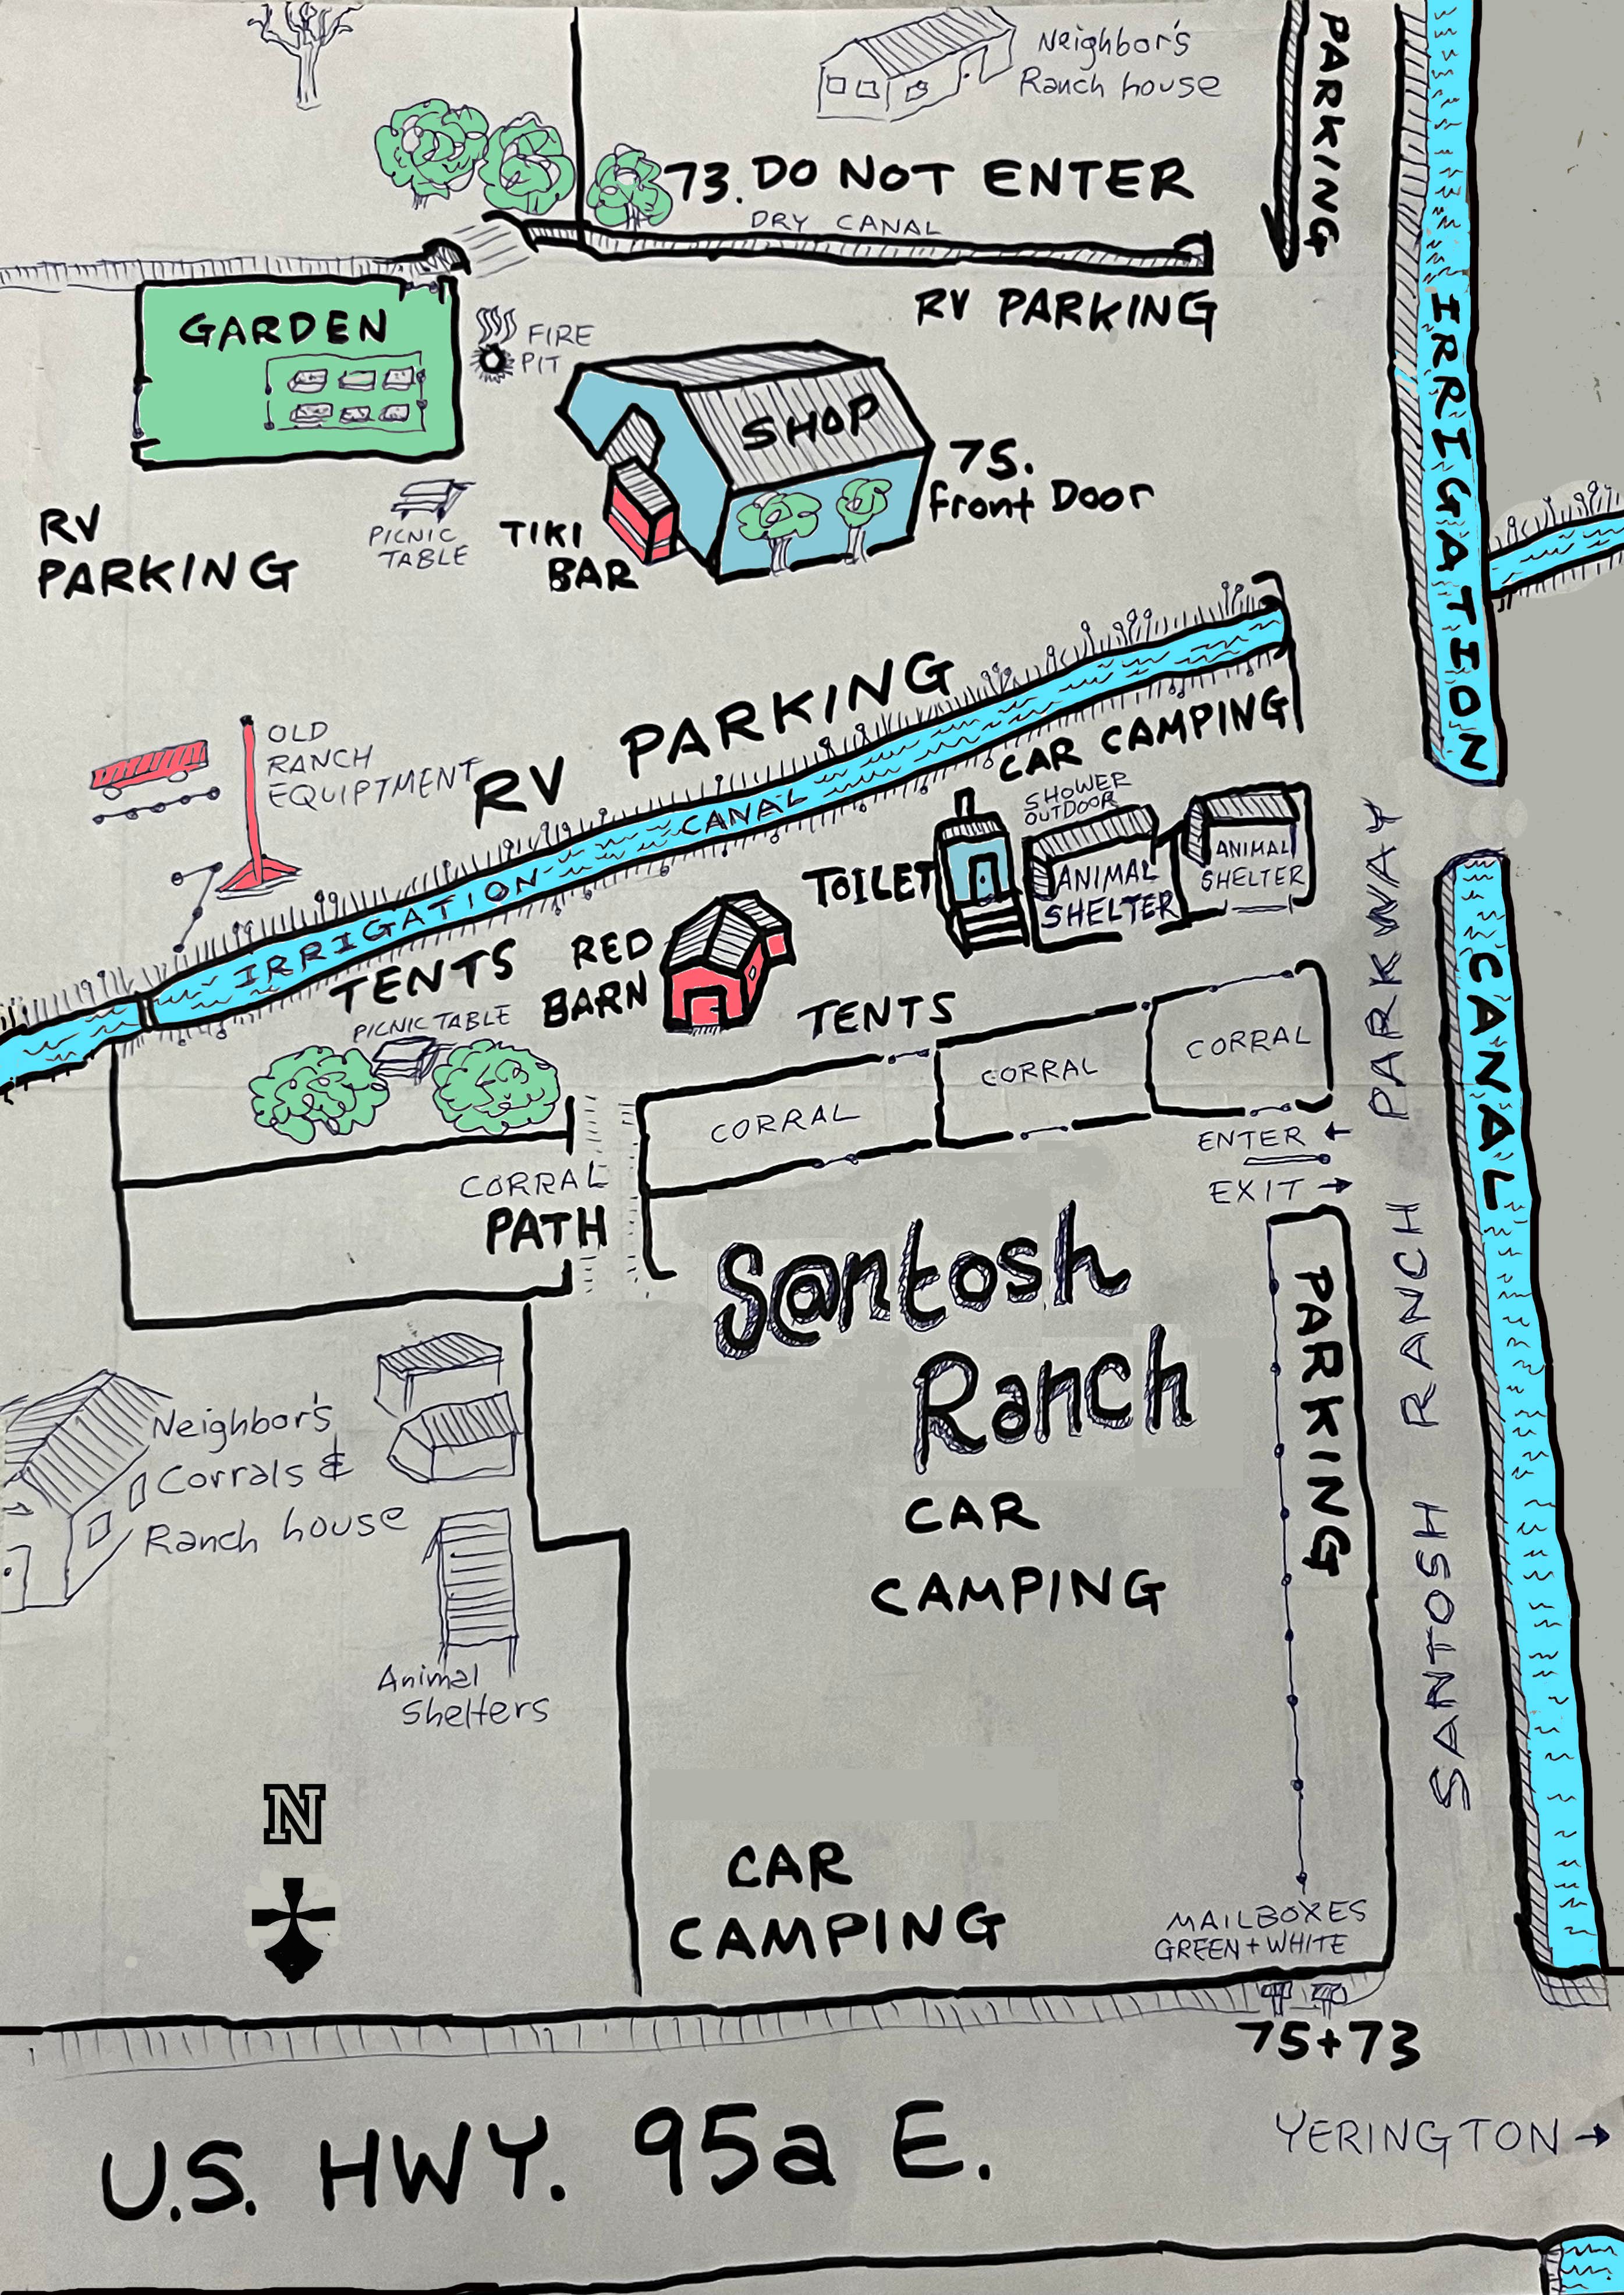 Neighbor's
Ranch house
PARKING
73. DO NOT ENTER
DRY CANAL
RV PARKING
GARDEN
FIRE
PIT
SHOP
75.
Front Door
RV
PARKING
PICNIC
TABLE
TIKI
BAR
IRRIGATION
RV PARKING
CAR CAMPING
OLD
RANCH
EQUIPTMENT
IRRIGATION CANAL
SHOWER
OUTDOOR
TOILET
ANIMAL
SHELTER
ANIMAL
SHELTER
TENTS
RED
BARN
PICNIC TABLE
TENTS
CANAL
CORRAL
CORRAL
CORRAL
ENTER ←
EXIT →
CORRAL
PATH
S@ntosh
Ranch
PARKING
SANTOSH RANCH PARKWAY
Neighbor's
Corrals &
Ranch house
CAR
CAMPING
Animal
Shelters
N
CAR
CAMPING
MAILBOXES
GREEN + WHITE
75+73
U.S. HWY. 95a E.
YERINGTON →